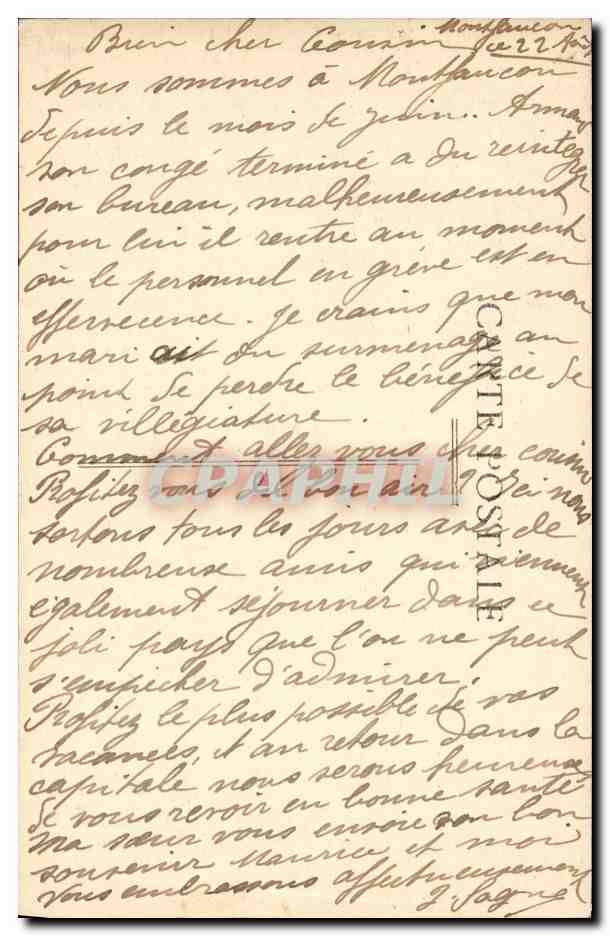 Montfaucon
ce 22 Août
Bien cher Cousin
Nous sommes à Montfaucon
depuis le mois de juin.. Armand
son congé terminé a du reintegrer
son bureau, malheureusement
pour lui il rentre au moment
où le personnel en grève est en
effervecence. Je crains que mon
mari ait du surmenage au
point de perdre le bénéfice de
sa villégiature.
Comment allez vous cher cousin
Profitez vous del bon air? Ici nous
sortons tous les jours avec de
nombreuse amis qui viennent
également séjourner dans ce
joli pays que l'on ne peut
s'empêcher d'admirer.
Profitez le plus possible de vos
vacances, et au retour dans la
capitale nous serons heureuse
de vous revoir en bonne santé
Ma sœur vous envoie son bon
souvenir Maurice et moi
vous embrassons affectueusement
J.
CARTE POSTALE
CPARHII